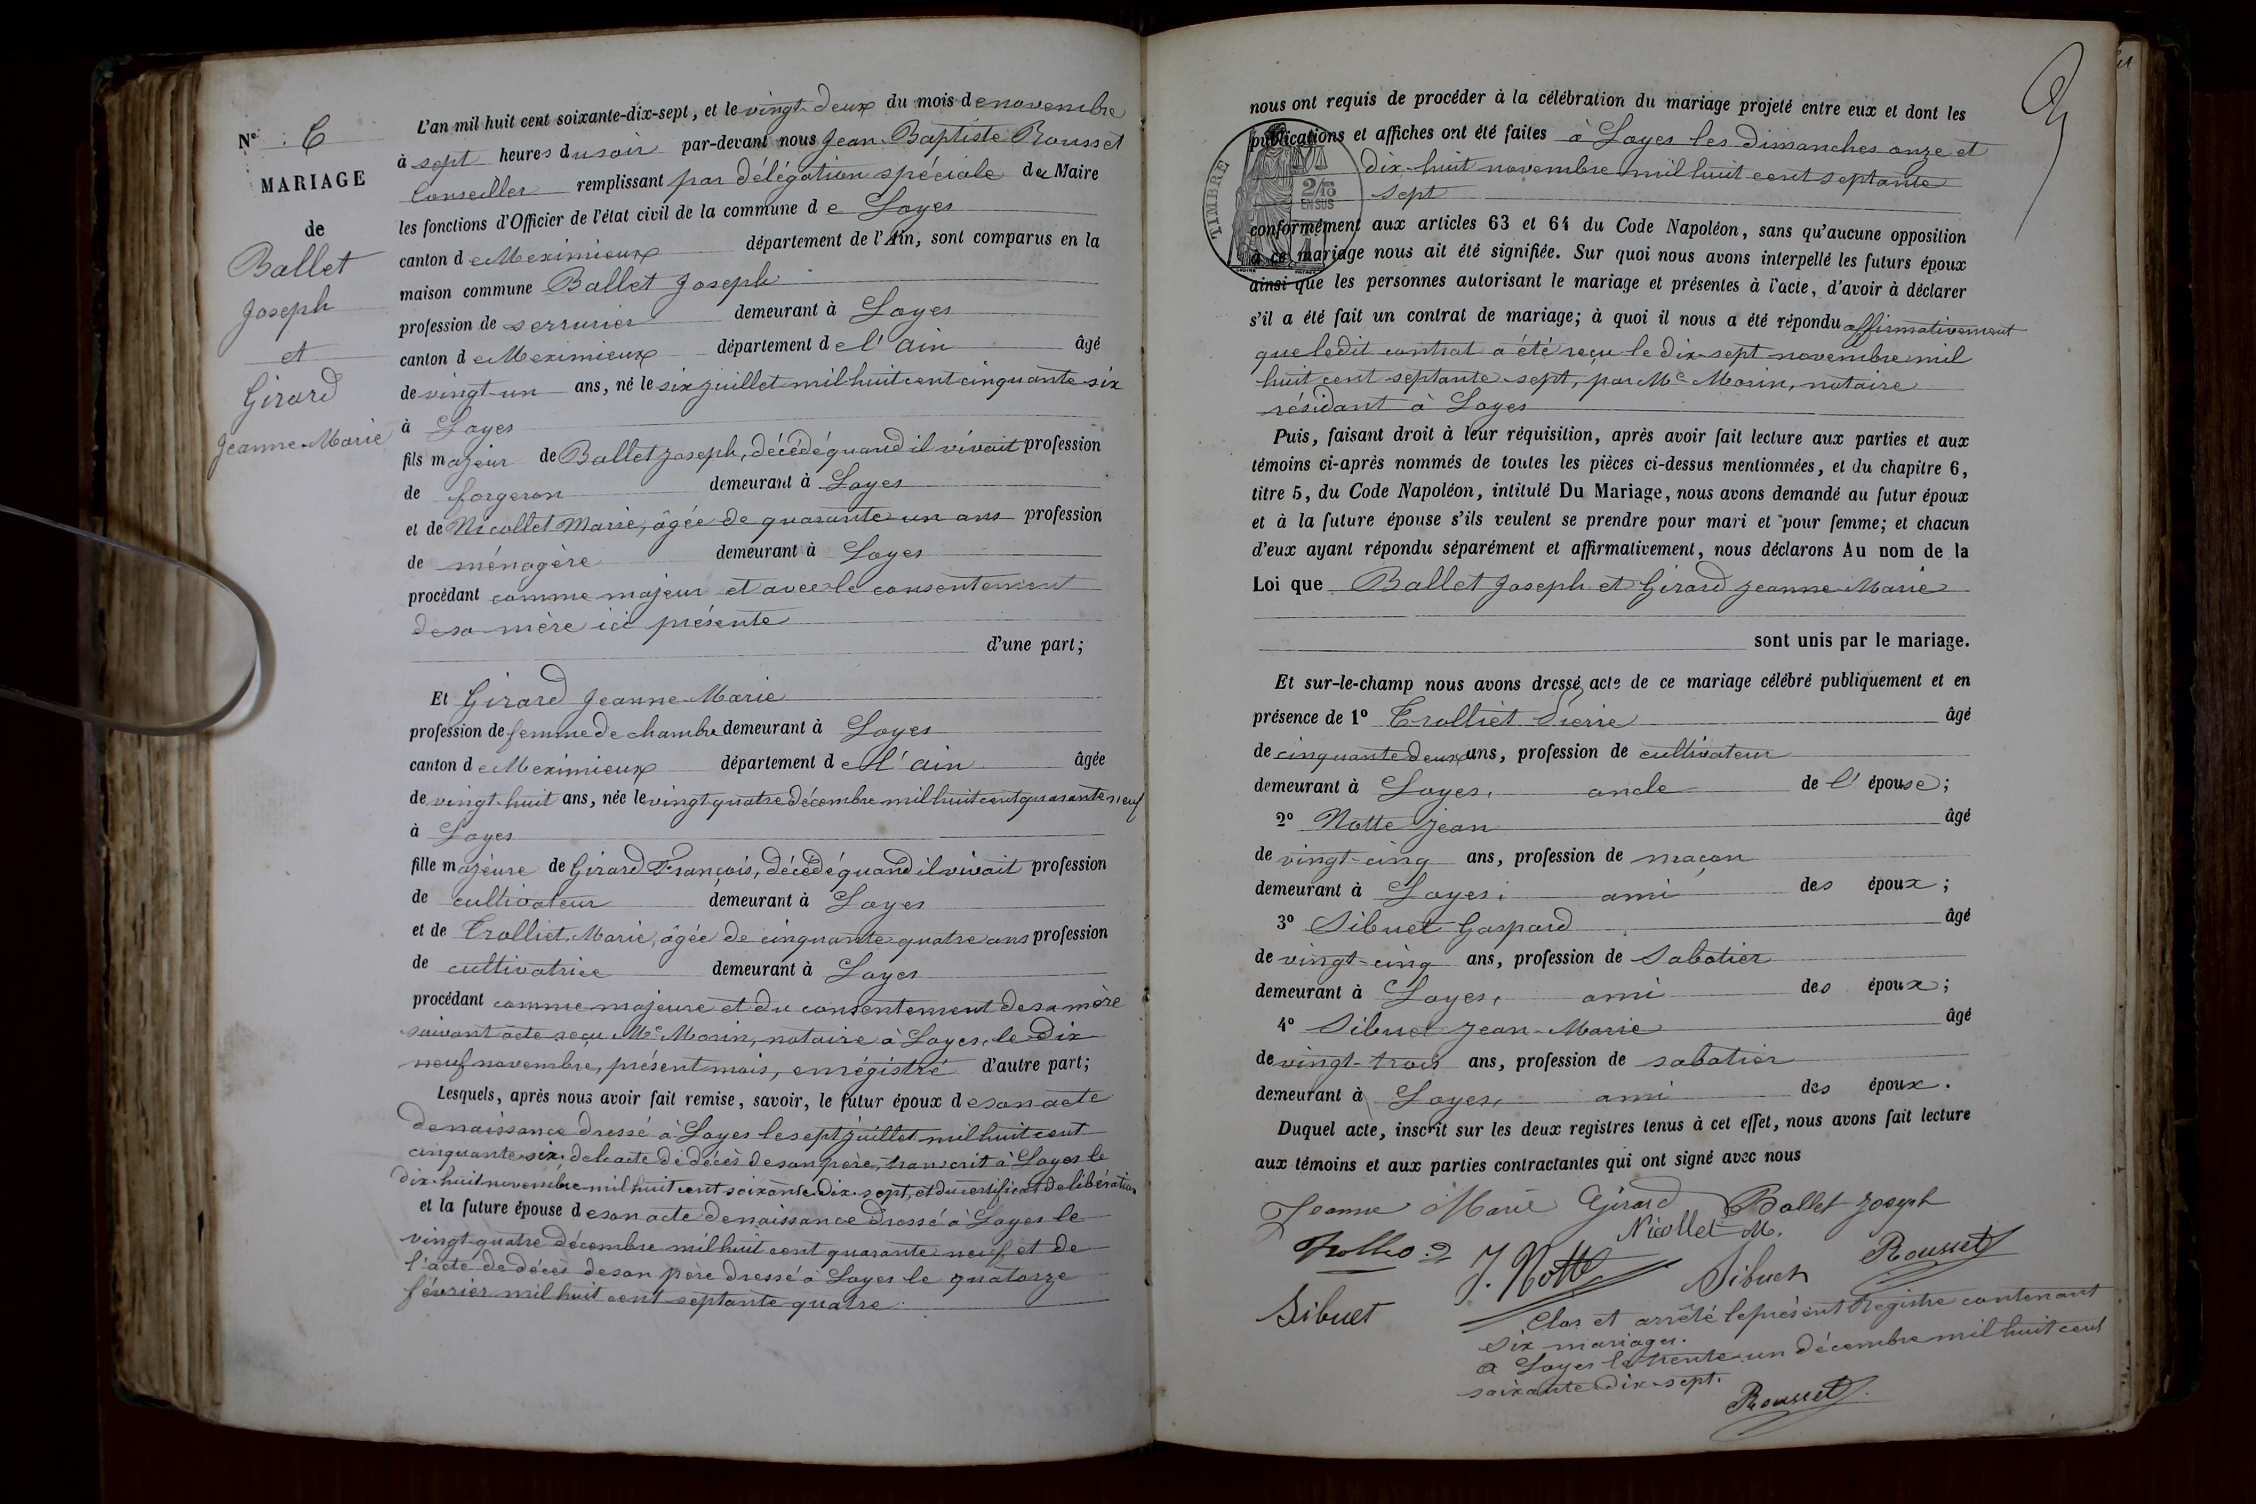 L'an mil huit cent soixante-dix-sept, et le vingt-deux du mois de novembre
N° 6
à sept heures du soir par-devant nous Jean-Baptiste Rousset
MARIAGE
Conseiller remplissant par délégation spéciale du Maire
de
les fonctions d'Officier de l'état civil de la commune de Loyes
Ballet
canton de Meximieux département de l'Ain, sont comparus en la
Joseph
maison commune Ballet Joseph
profession de serrurier demeurant à Loyes
et
canton de Meximieux département de l'ain âgé
Girard
de vingt-un ans, né le six juillet mil huit cent cinquante-six
Jeanne-Marie
à Loyes
fils majeur de Ballet Joseph, décédé quand il vivait profession
de forgeron demeurant à Loyes
et de Nicollet Marie, âgée de quarante-un ans profession
de ménagère demeurant à Loyes
procédant comme majeur et avec le consentement
de sa mère ici présente
d'une part;
Et Girard Jeanne-Marie
profession de femme de chambre demeurant à Loyes
canton de Meximieux département de l'ain âgée
de vingt-huit ans, née le vingt quatre décembre mil huit cent quarante neuf
à Loyes
fille majeure de Girard François, décédé quand il vivait profession
de cultivateur demeurant à Loyes
et de Trolliet Marie, âgée de cinquante-quatre ans profession
de cultivatrice demeurant à Loyes
procédant comme majeure et du consentement de sa mère
suivant acte reçu Me Morin, notaire à Loyes, le dix
neuf novembre, présent mois, enrégistré d'autre part;
Lesquels, après nous avoir fait remise, savoir, le futur époux de son acte
de naissance dressé à Loyes le sept juillet mil huit cent
cinquante-six, de l'acte de décès de son père, transcrit à Loyes le
dix-huit novembre mil huit cent soixante-dix-sept, et du certificat de libération
et la future épouse de son acte de naissance dressé à Loyes le
vingt-quatre décembre mil huit cent quarante-neuf et de
l'acte de décès de son père dressé à Loyes le quatorze
février mil huit cent septante quatre.
nous ont requis de procéder à la célébration du mariage projeté entre eux et dont les
publications et affiches ont été faites à Loyes les dimanches onze et
dix-huit novembre mil huit cent septante
sept
TIMBRE
2/10
EN SUS
conformément aux articles 63 et 64 du Code Napoléon, sans qu'aucune opposition
à ce mariage nous ait été signifiée. Sur quoi nous avons interpellé les futurs époux
ainsi que les personnes autorisant le mariage et présentes à l'acte, d'avoir à déclarer
s'il a été fait un contrat de mariage; à quoi il nous a été répondu affirmativement
que ledit contrat a été reçu le dix-sept novembre mil
huit cent septante-sept, par Me Morin, notaire
résidant à Loyes
Puis, faisant droit à leur réquisition, après avoir fait lecture aux parties et aux
témoins ci-après nommés de toutes les pièces ci-dessus mentionnées, et du chapitre 6,
titre 5, du Code Napoléon, intitulé Du Mariage, nous avons demandé au futur époux
et à la future épouse s'ils veulent se prendre pour mari et pour femme; et chacun
d'eux ayant répondu séparément et affirmativement, nous déclarons Au nom de la
Loi que Ballet Joseph et Girard Jeanne-Marie
sont unis par le mariage.
Et sur-le-champ nous avons dressé acte de ce mariage célébré publiquement et en
présence de 1° Trolliet Pierre âgé
de cinquante deux ans, profession de cultivateur
demeurant à Loyes, oncle de l'épouse;
2° Notte Jean âgé
de vingt-cinq ans, profession de maçon
demeurant à Loyes, ami des époux;
3° Sibuet Gaspard âgé
de vingt-cinq ans, profession de Sabotier
demeurant à Loyes, ami des époux;
4° Sibuet Jean-Marie âgé
de vingt-trois ans, profession de sabotier
demeurant à Loyes, ami des époux.
Duquel acte, inscrit sur les deux registres tenus à cet effet, nous avons fait lecture
aux témoins et aux parties contractantes qui ont signé avec nous
Jeanne Marie Girard Ballet Joseph
Nicollet M.
J. Notte Sibuet Rousset
Sibuet
Clos et arrêté le présent Registre contenant
six mariages.
A Loyes le trente-un décembre mil huit cent
soixante-dix-sept.
Rousset